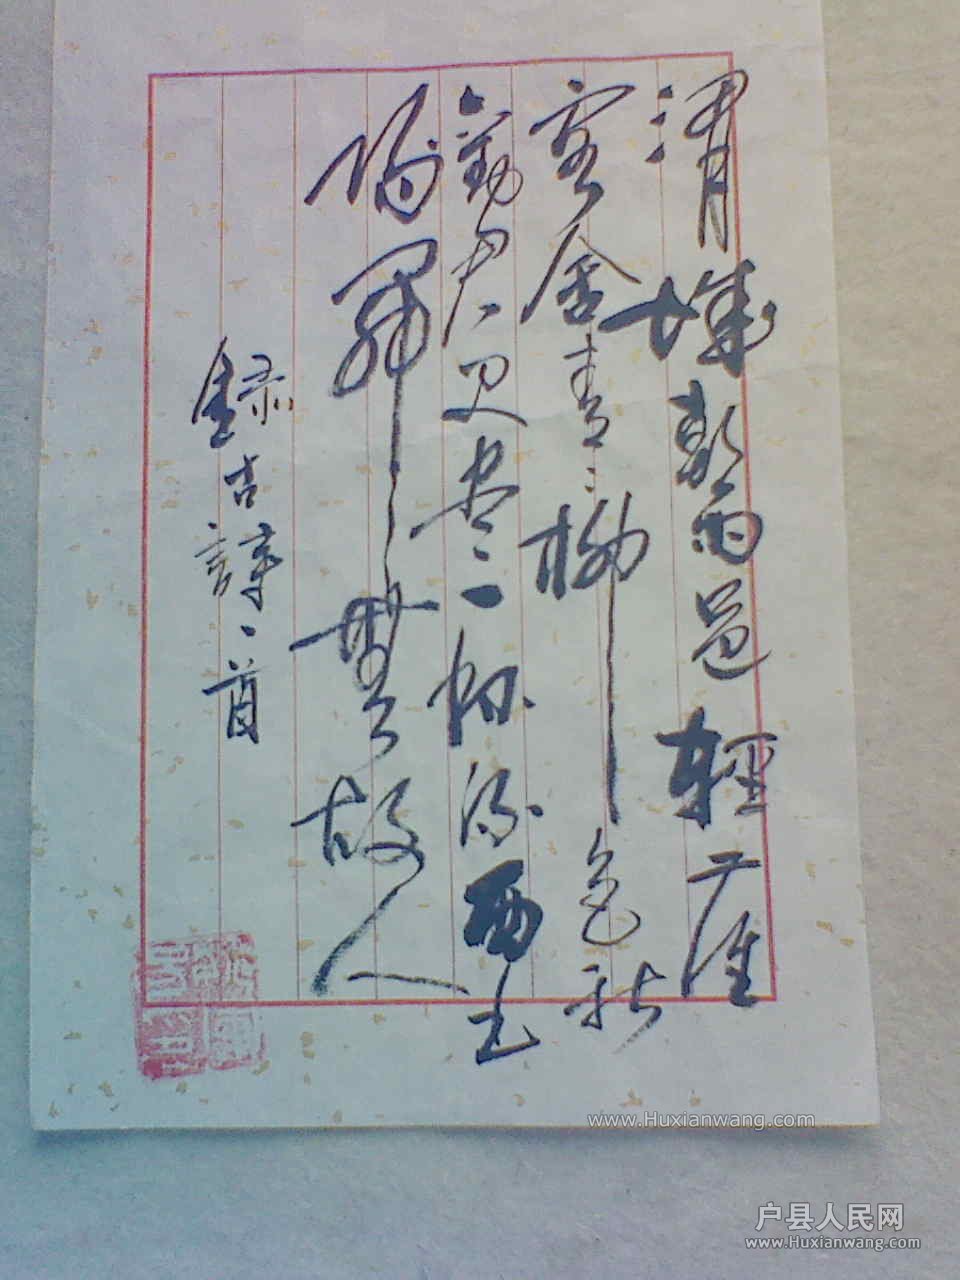 渭城朝雨浥輕塵
客舍青々柳色新
勸君更尽一杯酒西出
陽關無故人
錄古詩一首
www.Huxianwang.com
户县人民网
www.Huxianwang.com